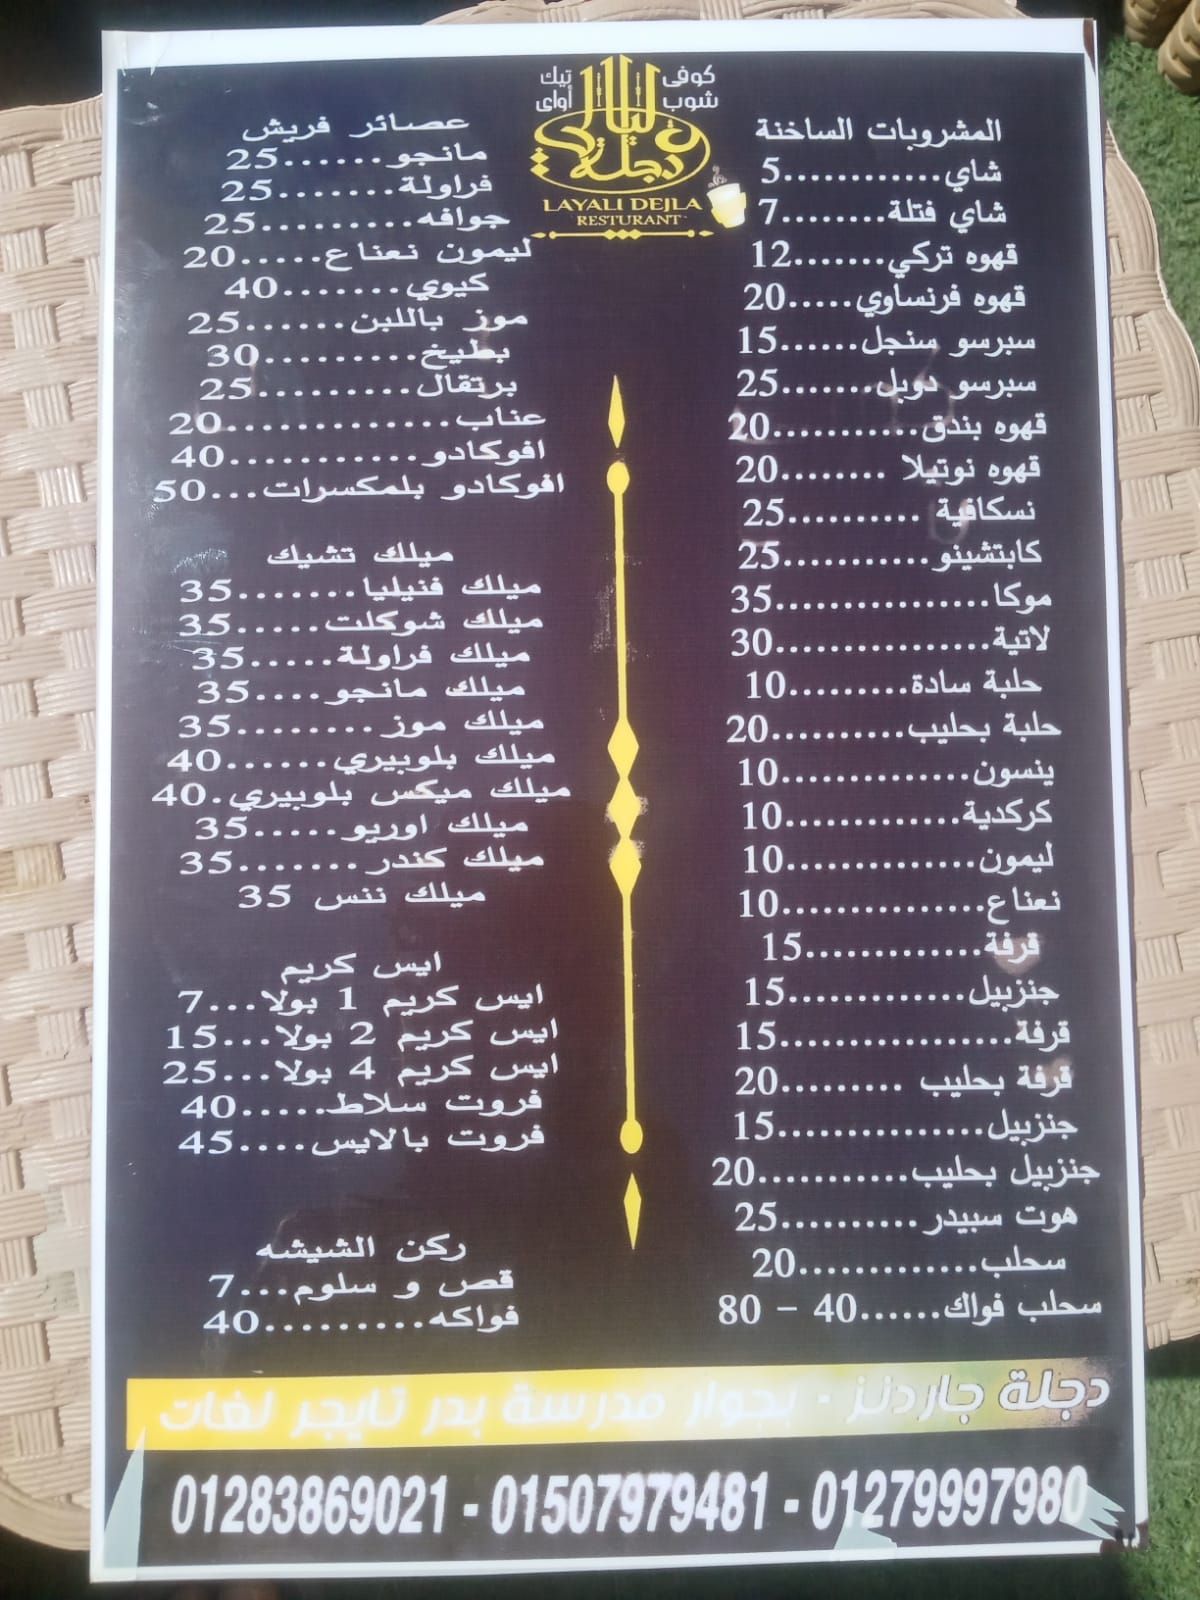 كوفي شوب
تيك أواي
ليالي دجلة
LAYALI DEJLA
RESTURANT
المشروبات الساخنة
شاي............5
شاي فتلة........7
قهوه تركي.......12
قهوه فرنساوي.....20
سبرسو سنجل......15
سبرسو دوبل.......25
قهوه بندق...........20
قهوه نوتيلا ........20
نسكافية ..........25
كابتشينو...........25
موكا................35
لاتية................30
حلبة سادة.........10
حلبة بحليب..........20
ينسون..............10
كركدية.............10
ليمون..............10
نعناع...............10
قرفة.............15
جنزبيل.............15
قرفة.................15
قرفة بحليب .........20
جنزبيل...............15
جنزبيل بحليب...........20
هوت سبيدر..........25
سحلب.............20
سحلب فواك......40 – 80
عصائر فريش
مانجو......25
فراولة.......25
جوافه.......25
ليمون نعناع.....20
كيوي.......40
موز باللبن......25
بطيخ.........30
برتقال.........25
عناب.............20
افوكادو...........40
افوكادو بلمكسرات...50
ميلك تشيك
ميلك فنيليا.......35
ميلك شوكلت.....35
ميلك فراولة.....35
ميلك مانجو....35
ميلك موز........35
ميلك بلوبيري......40
ميلك ميكس بلوبيري.40
ميلك اوريو.....35
ميلك كندر.......35
ميلك ننس 35
ايس كريم
ايس كريم 1 بولا...7
ايس كريم 2 بولا...15
ايس كريم 4 بولا...25
فروت سلاط.....40
فروت بالايس....45
ركن الشيشه
قص و سلوم...7
فواكه.........40
دجلة جاردنز - بجوار مدرسة بدر تايجر لغات
01283869021 - 01507979481 - 01279997980